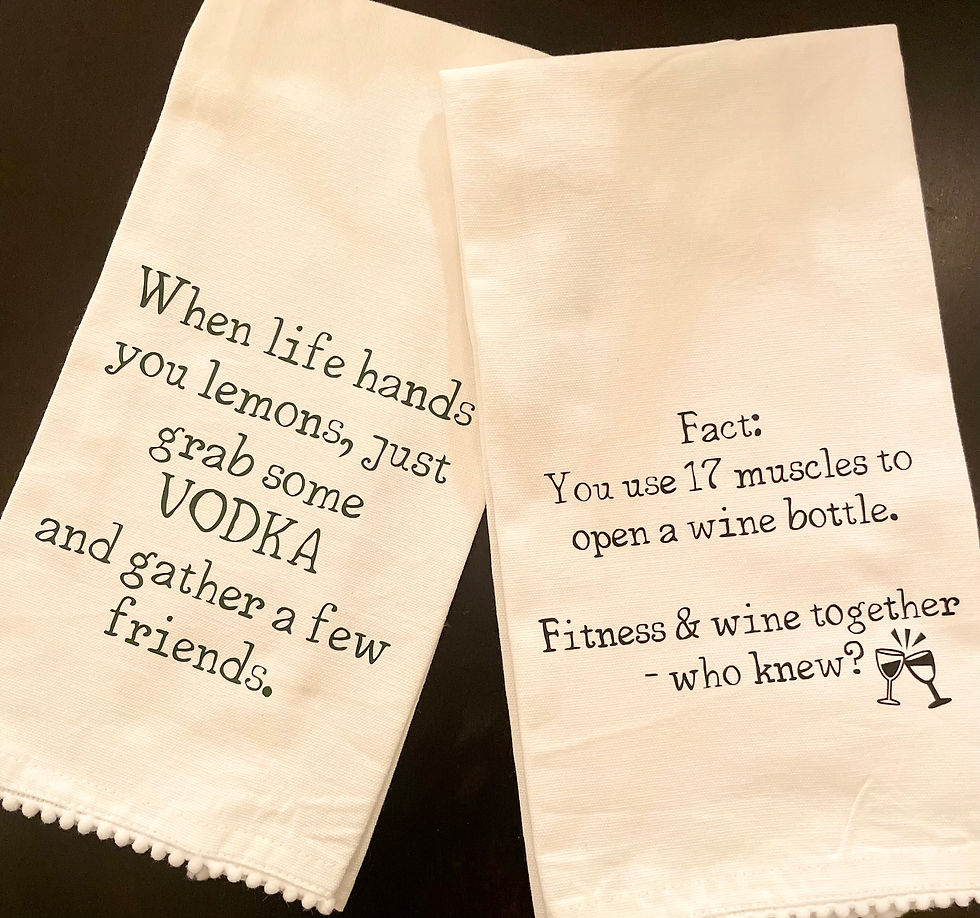 When life hands
you lemons, just
grab some
VODKA
and gather a few
friends.
Fact:
You use 17 muscles to
open a wine bottle.
Fitness & wine together
- who knew?